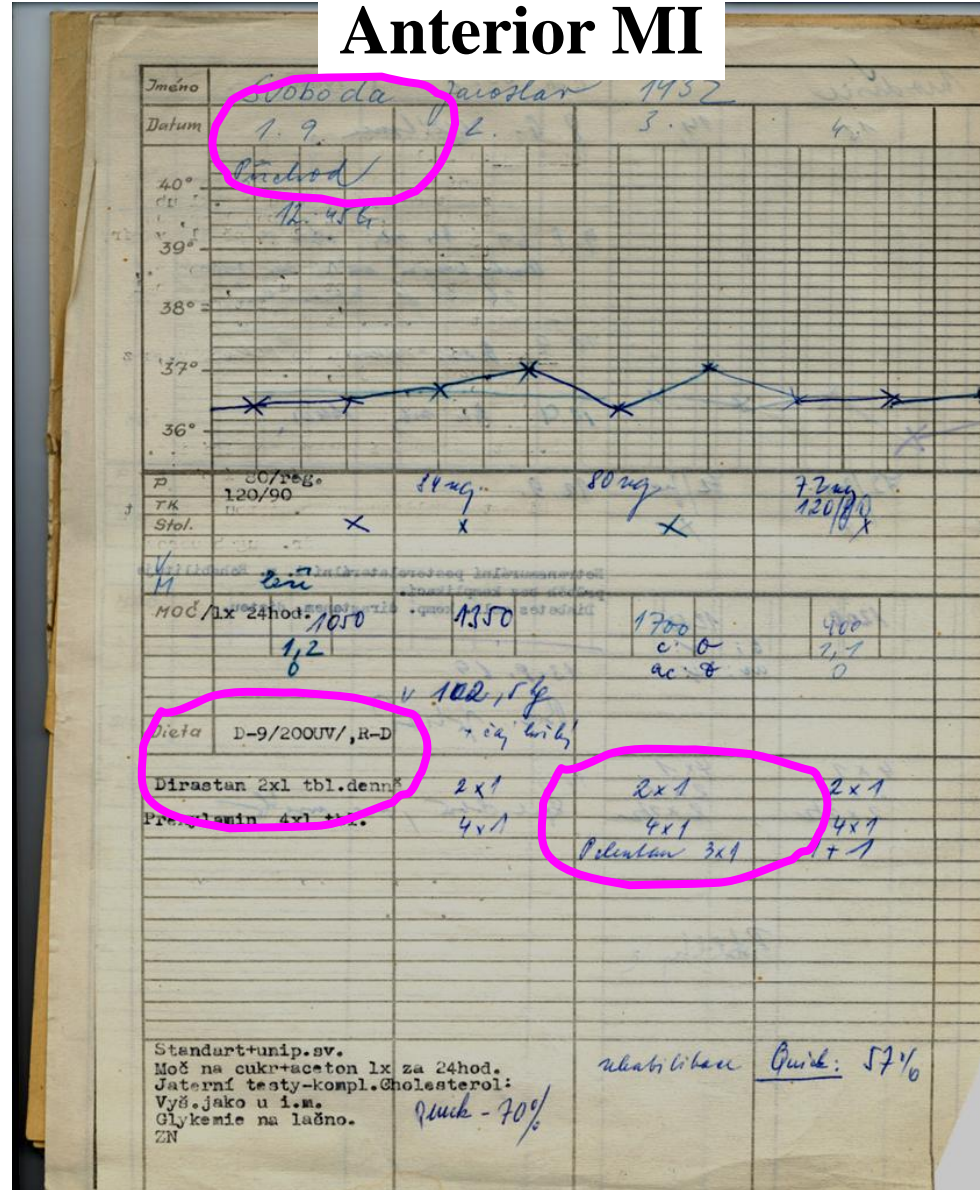 Anterior MI
Jméno Svoboda Jaroslav 1932
Datum 1. 9. 2. 3. 4.
Příchod
12.45 h.
40°
39°
38°
37°
36°
P 80/reg. 84 reg. 80 reg. 72 reg
TK 120/90 120/80
Stol. x x x x
V
M leží
Moč/1x 24hod. 1050 1350 1700 400
1,2 c: 0 1,1
0 ac: 0 0
v 102,5 kg
Dieta D-9/200UV/,R-D + čaj hořký
Dirastan 2x1 tbl.denně 2x1 2x1 2x1
Prenylamin 4x1 tbl. 4x1 4x1 4x1
Pelentan 3x1 1+1
Standart+unip.sv.
Moč na cukr+aceton 1x za 24hod. rehabilitace Quick: 57%
Jaterní testy-kompl.Cholesterol:
Vyš.jako u i.m.
Glykemie na lačno. Quick - 70%
ZN